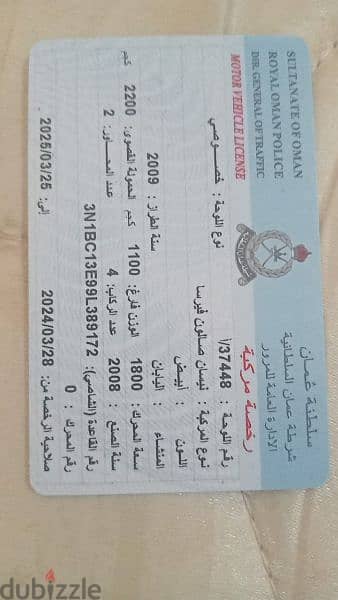 SULTANATE OF OMAN
ROYAL OMAN POLICE
DIR. GENERAL OF TRAFFIC
MOTOR VEHICLE LICENSE
سلطنة عُمان
شرطة عمان السلطانية
الإدارة العامة للمرور
رخصة مركبة
رقم اللوحة : 37448/ا نوع اللوحة : خصوصي
نوع المركبة : نيسان صالون فيرسا
اللون : أبيض
المنشاء : اليابان سنة الطراز : 2009
سعة المحرك: 1800 الوزن فارغ: 1100 كجم الحمولة القصوى: 2200 كجم
سنة الصنع : 2008 عدد الركاب: 4 عدد المحاور: 2
رقم القاعدة (الشاصي): 3N1BC13E99L389172
رقم المحرك : 0
صلاحية الرخصة من: 2024/03/28 إلى: 2025/03/25
dubizzle